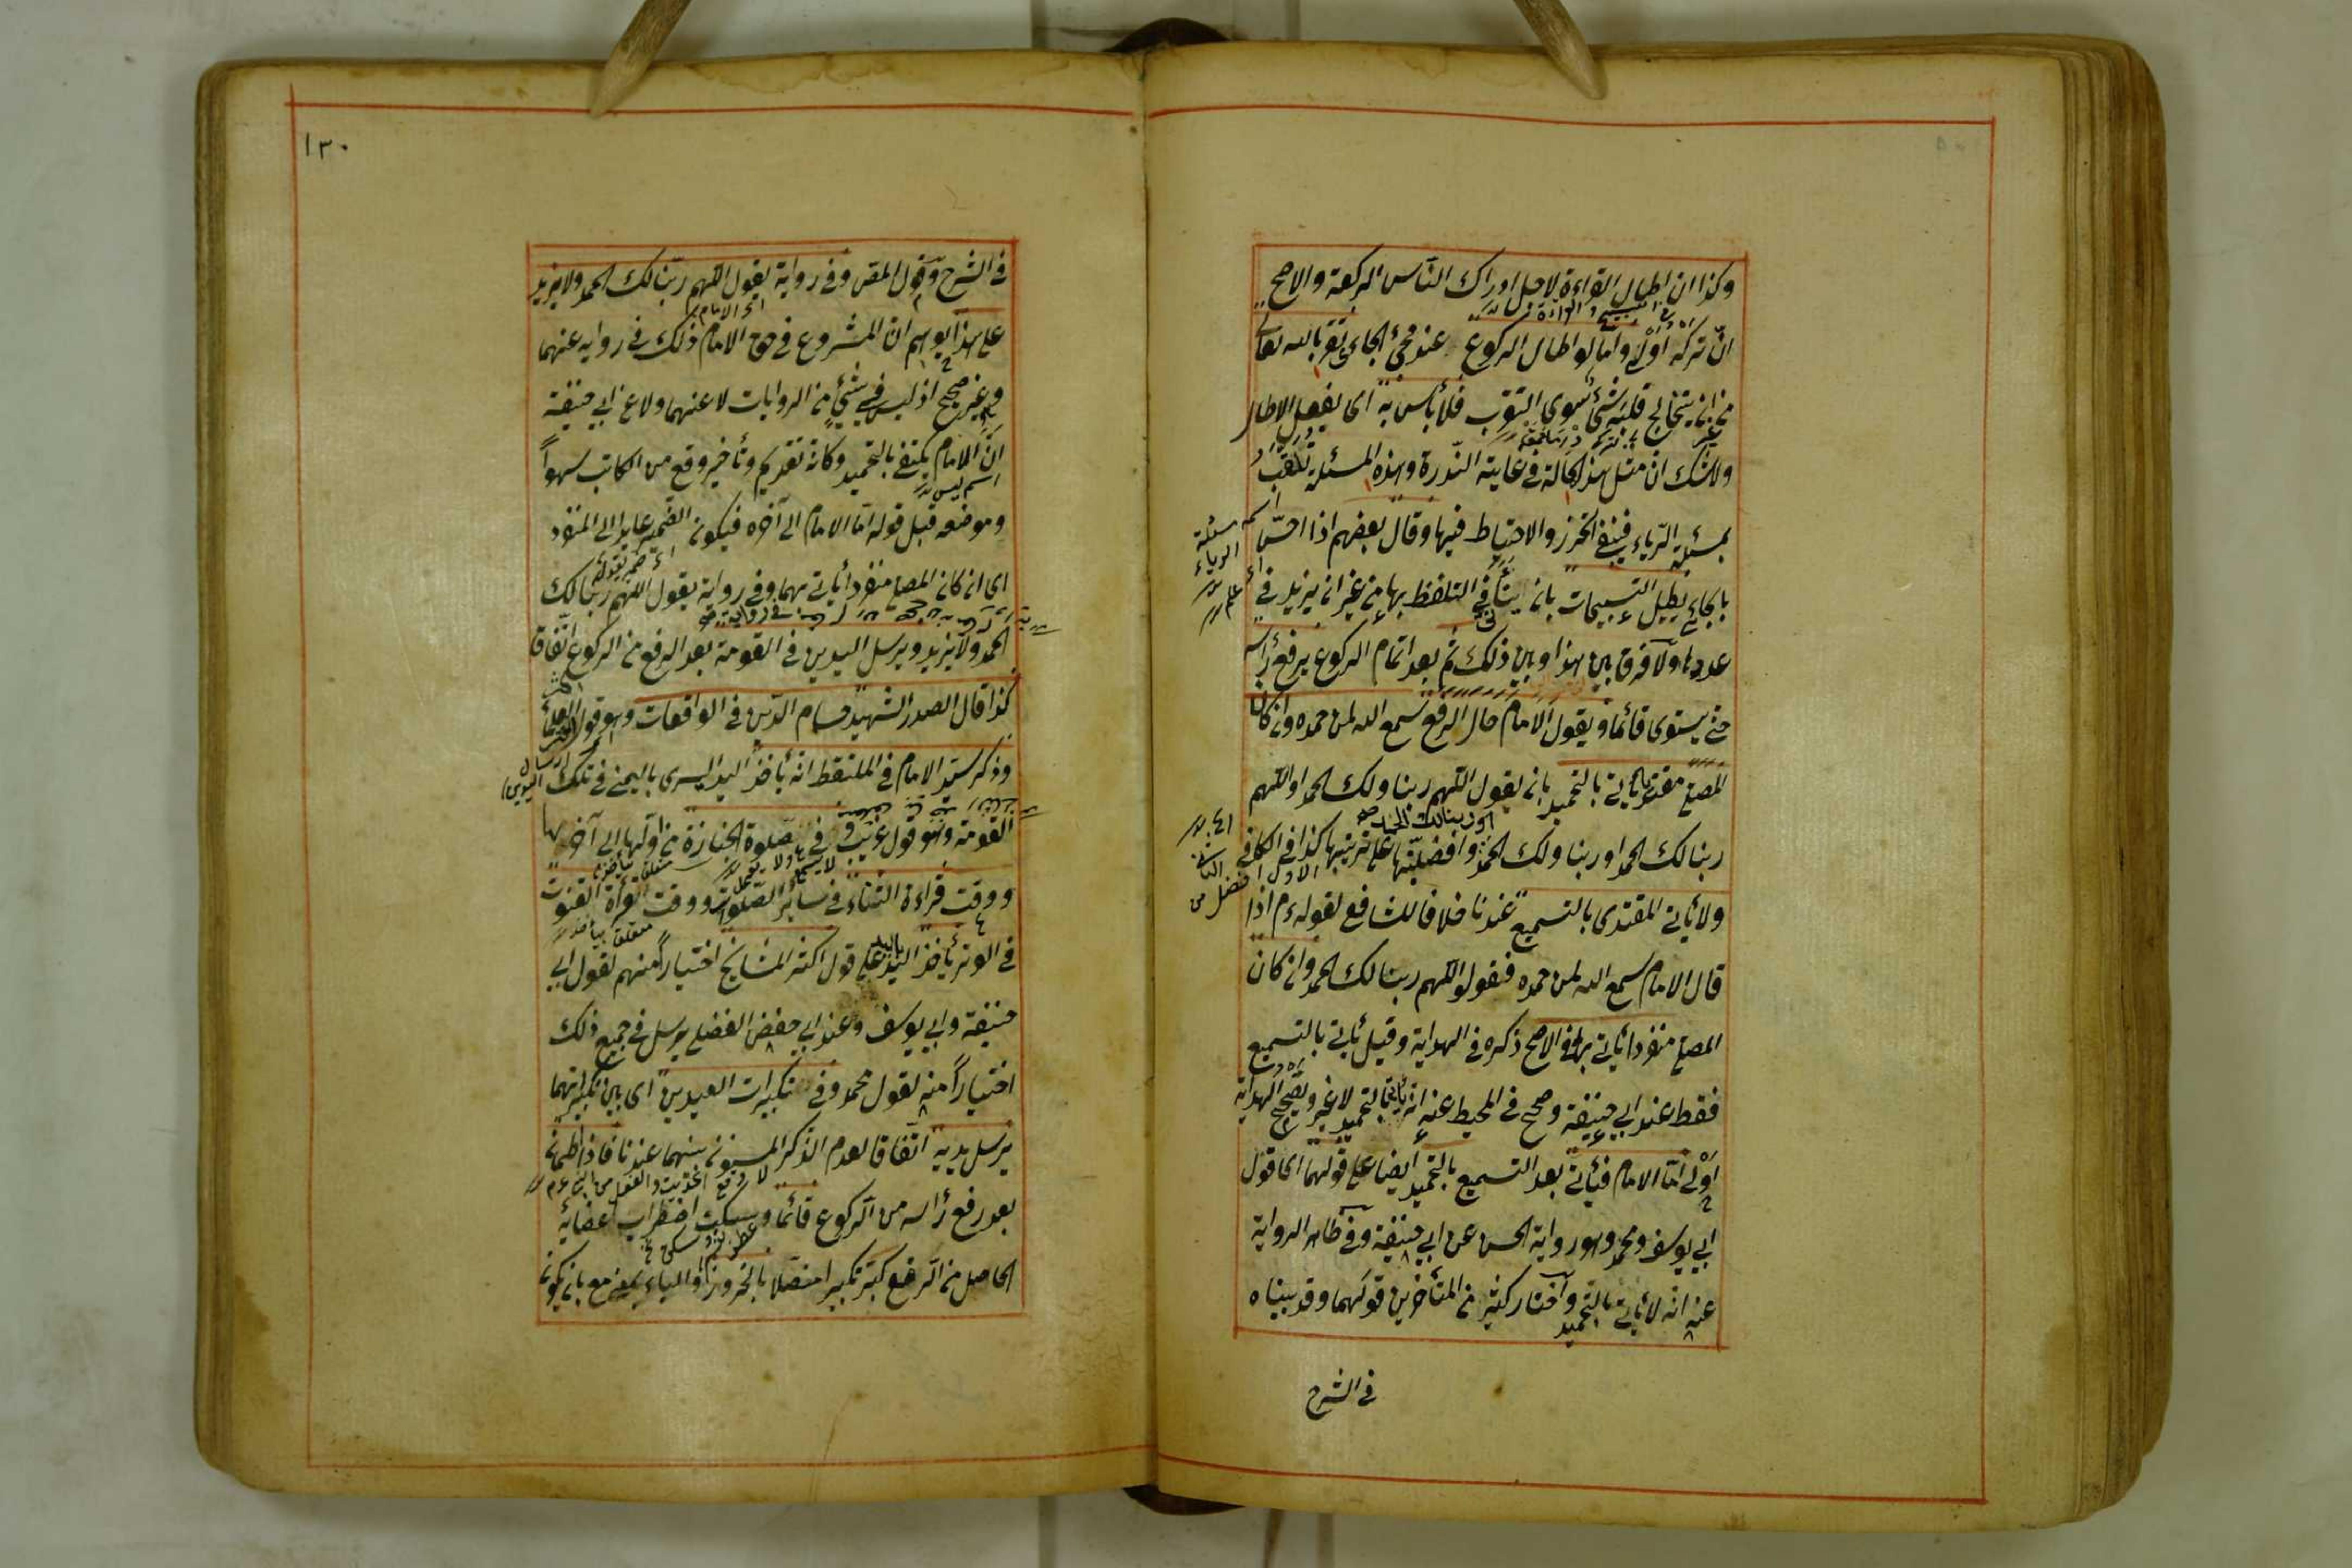 وكذا ان اطال القراءة لاجل ادراك الناس الركعة والاصح
انّ تركه اولى واما لو اطال الركوع عند مجئ الجائى تقربا لله تعالى
من غير ان يتخالج قلبه شئ سوى التقرب فلا بأس به اى بفعل الاطالة
ولا شك ان مثل هذه الحالة فى غاية الندرة وهذه المسئلة تلقب
بمسئلة الرياء فينبغى التحرز والاحتياط فيها وقال بعضهم اذا احسّ
بالجائى يطيل التسبيحات بان يتأنى فى التلفظ بها من غير ان يزيد فى
عددها ولا فرق بين هذا وبين ذلك ثم بعد اتمام الركوع يرفع رأسه
حتى يستوى قائما ويقول الامام حال الرفع سمع الله لمن حمده وان كان
المصلى مقتديا يأتى بالتحميد بان يقول اللهم ربنا ولك الحمد او اللهم
ربنا لك الحمد او ربنا ولك الحمد وافضليتها على ترتيبها كذا فى الكافى
او ربنا لك الحمد صح
ولا يأتى المقتدى بالتسميع عندنا خلافا للشافعى لقوله ءم اذا
قال الامام سمع الله لمن حمده فقولوا اللهم ربنا لك الحمد وان كان
المصلى منفردا يأتى بهما فى الاصح ذكره فى الهداية وقيل يأتى بالتسميع
فقط عند ابى حنيفة وصحح فى المحيط عنه انه يأتى بالتحميد لا غير وتصحيح الهداية
اولى امّا الامام فيأتى بعد التسميع بالتحميد ايضا على قولهما اى قول
ابى يوسف ومحمد وهو رواية الحسن عن ابى حنيفة وفى ظاهر الرواية
عنه انه لا يأتى بالتحميد واختار كثير من المتأخرين قولهما وقد بيناه
فى الشرح
مسئلة الرياء
١٣٠
فى الشرح وقول المص وفى رواية يقول اللهم ربنا لك الحمد ولا يزيد
اى الامام
على هذا يوهم ان المشروع فى حق الامام ذلك فى رواية عنهما
وهو غير صحيح اذ ليس فى شئ من الروايات لا عنهما ولا عن ابى حنيفة
انّ الامام يكتفى بالتحميد وكانه تقديم وتأخير وقع من الكاتب سهوا
اسم ليس
وموضعه قبل قوله امّا الامام الى آخره فيكون الضمير عايدا الى المنفرد
اى ان كان المصلى منفردا يأتى بهما وفى رواية يقول اللهم ربنا لك
الحمد ولا يزيد ويرسل اليدين فى القومة بعد الرفع من الركوع اتفاقا
كذا قال الصدر الشهيد حسام الدين فى الواقعات وهو قول
وذكر سيد الامام فى الملتقط انه يأخذ اليد اليسرى باليمنى فى تلك
القومة وهو قول غريب وفى صلوة الجنازة من اولها الى آخرها
ووقت قراءة الثناء فى سائر الصلوات ووقت قرأة القنوت
فى الوتر يأخذ اليد باليد على قول اكثر المشايخ اختيارا منهم لقول ابى
حنيفة وابى يوسف وعند ابى حفص الفضلى يرسل فى جميع ذلك
اختيارا منه لقول محمد وفى تكبيرات العيدين اى بين تكبيراتهما
يرسل يديه اتفاقا لعدم الذكر المسنون بينهما عندنا فاذا اطمأن
بعد رفع رأسه من الركوع قائما وسكنت اضطراب اعضائه
الحاصل من الرفع كبّر تكبيرا متصلا بالخرور والباء بمعنى مع بان يكون